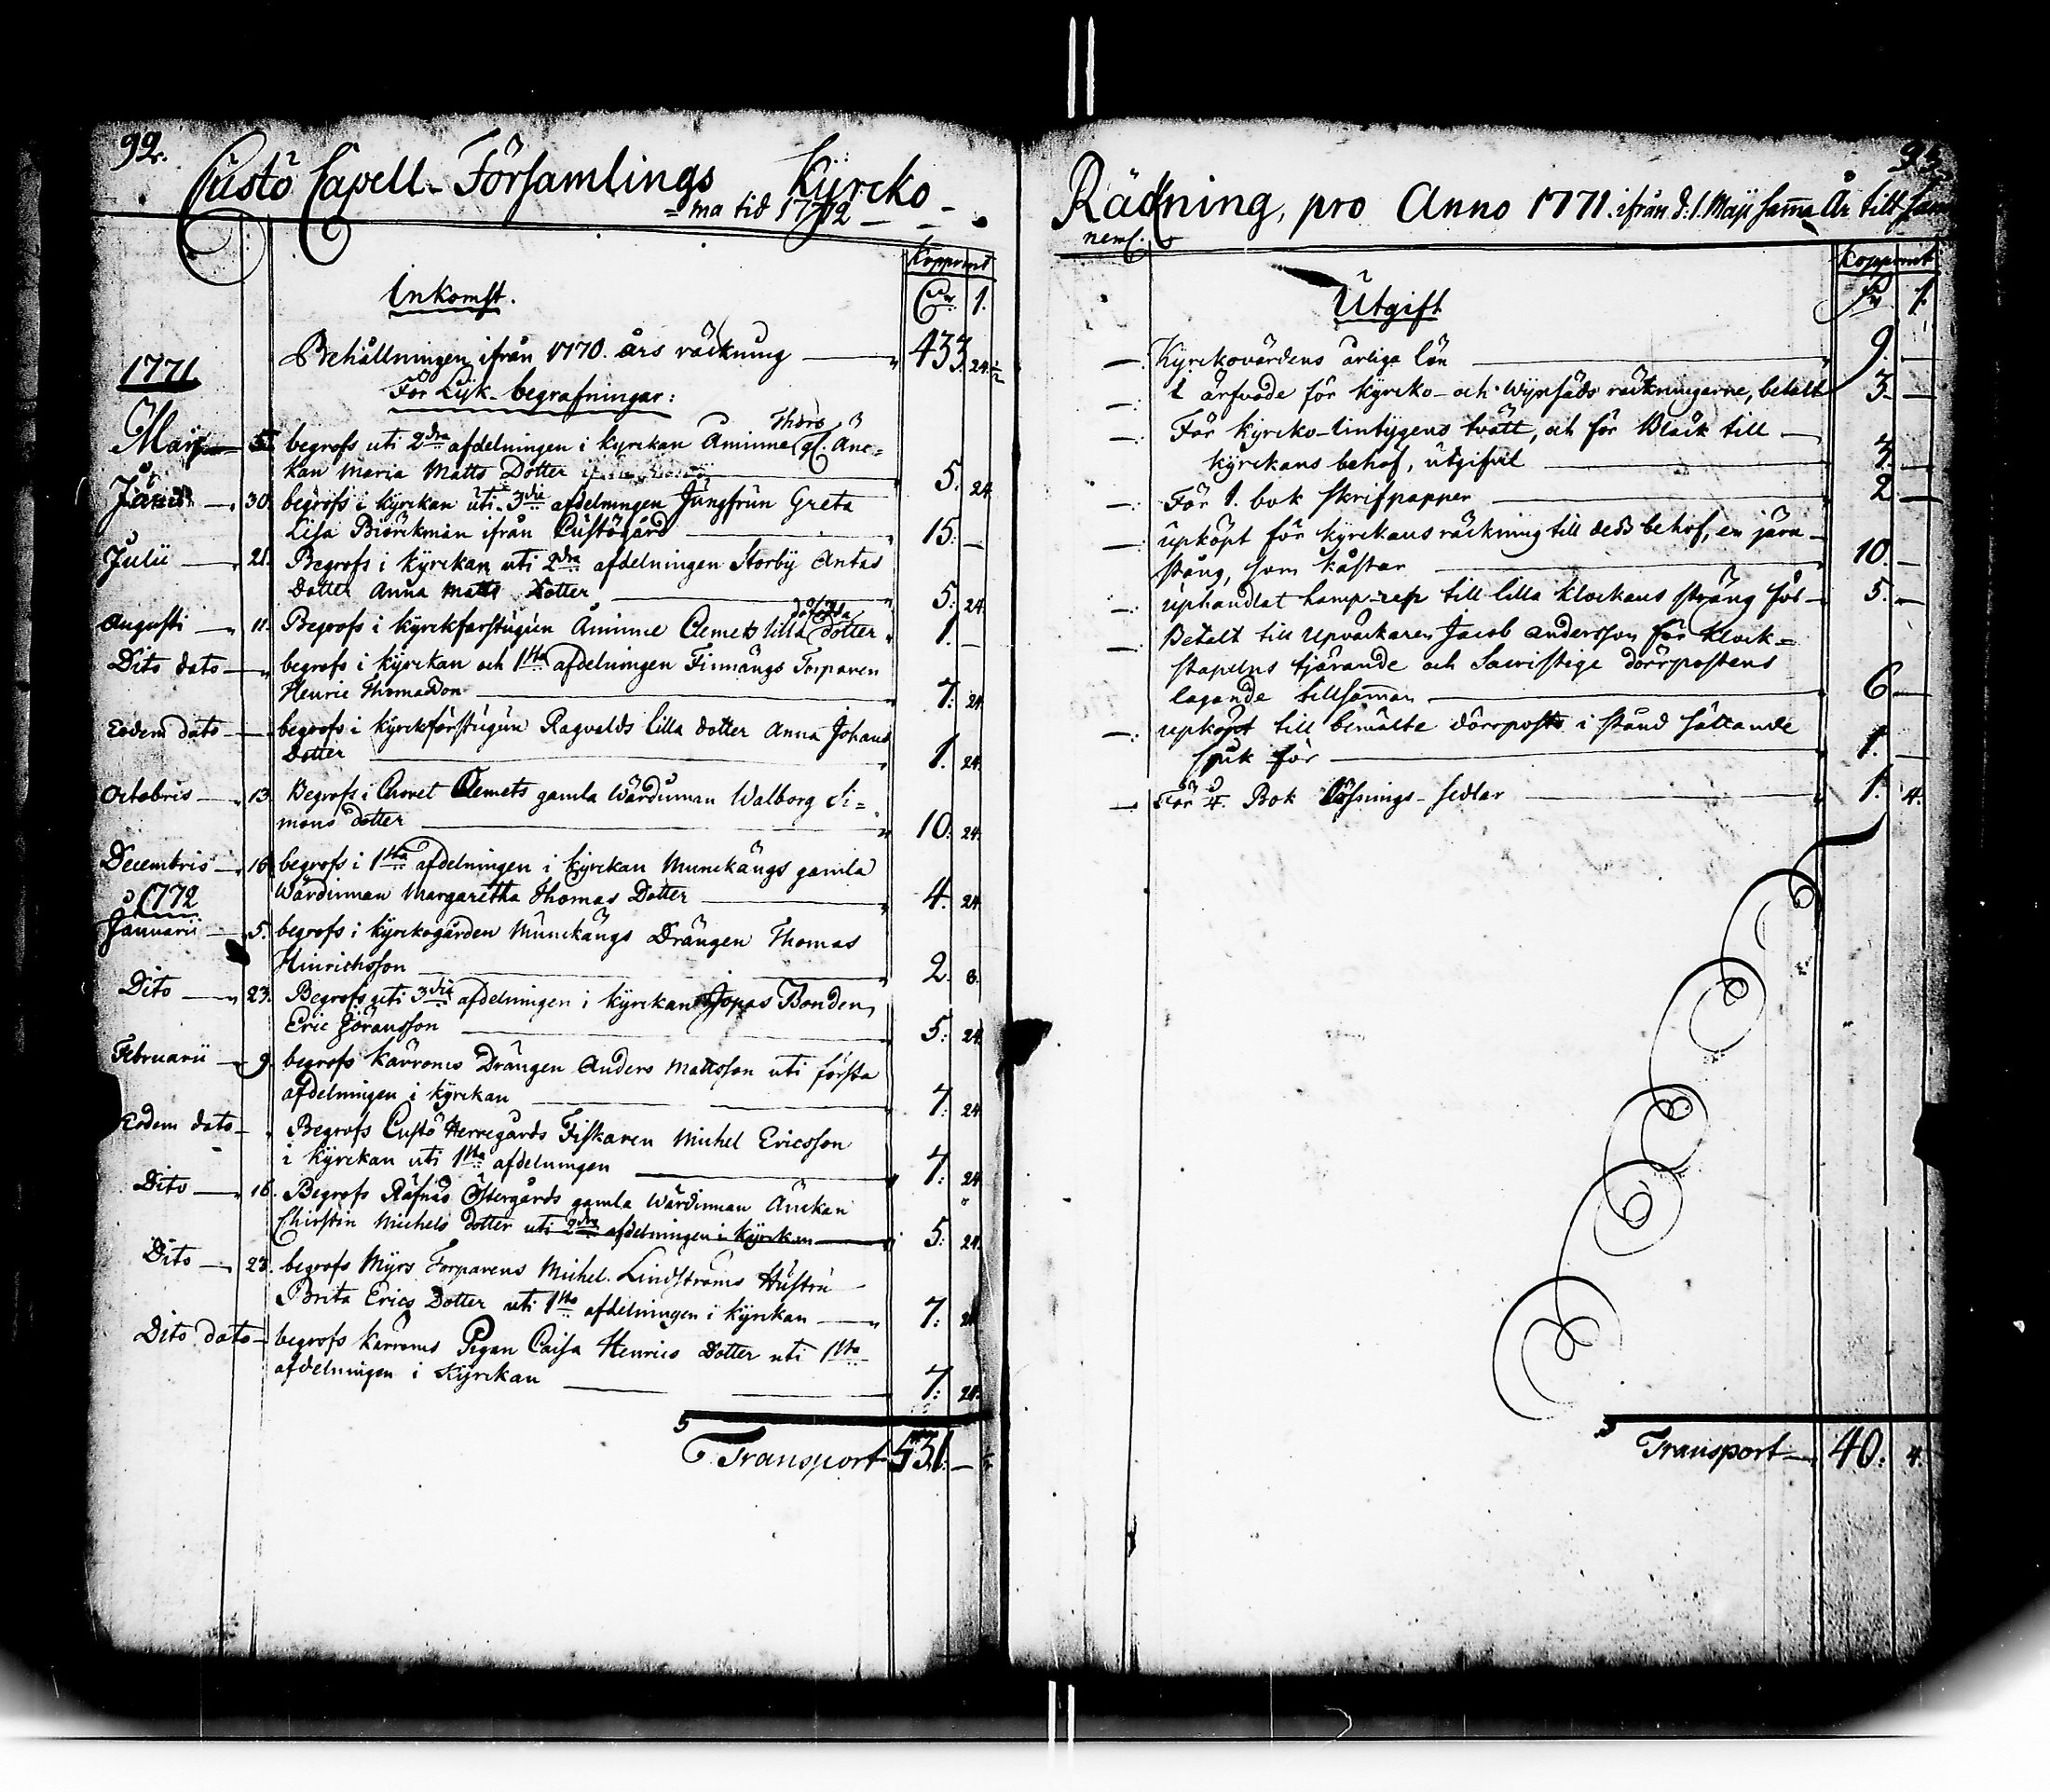 92.
Custö Capell-Församlings Kyrcko-
=ma tid 1772
Kopp:mt
Inkomst.
1.
Behållningen ifrån 1770. års räckning 433. 24. 1/2
1771
För Lijk-begrafningar:
Thors
Maij 5. begrofs uti 2dra afdelningen i kyrckan Aminne gl. Änc=
kan Maria Matts Dotter 5. 24.
Junii 30. begrofs i kyrckan uti 3die afdelningen Jungfrun Greta
Lisa Biörckman ifrån Custögård 15. —
Julii 21. Begrofs i kyrckan uti 2dra afdelningen Storby Antas
Dotter Anna Matts Dotter 5. 24.
Augusti 11. Begrofs i kyrckfarstugun Åminne Clemets lilla dotter 1. —
Dito dato begrofs i kyrckan och 1sta afdelningen Finnängs Torparen
Henric Thomasson 7. 24.
Eodem dato begrofs i kyrckförstugun Ragvalds lilla dotter Anna Johans
Dotter 1. 24.
Octobris 13. Begrofs i Choret Clemets gamla Wärdinnan Walborg Si=
mons dotter 10. 24.
Decembris 16. begrofs i 1sta afdelningen i kyrckan Munckängs gamla
Wärdinnan Margaretha Thomas Dotter 4. 24.
1772
Januarii 5. begrofs i kyrckogården Munckängs Drängen Thomas
Hinrichsson 2. 8.
Dito 23. Begrofs uti 3die afdelningen i kyrckan Jopas Bonden
Eric Göransson 5. 24.
Februarii 9. begrofs Kärroms Drängen Anders Mattsson uti första
afdelningen i kyrckan 7. 24.
Eodem dato Begrofs Custö Herregårds Fiskaren Michel Ericsson
i kyrckan uti 1sta afdelningen 7. 24.
Dito 16. Begrofs Räfnäs Östergårds gamla Wärdinnan Änckan
Chirstin Michels dotter uti 2dra afdelningen i Kyrckan 5. 24.
Dito 23. begrofs Myrs Torparens Michel Lindströms Hustru
Brita Erics Dotter uti 1sta afdelningen i kyrckan 7. 24.
Dito dato begrofs Kärroms Pigan Caisa Henrics Dotter uti 1sta
afdelningen i Kyrckan 7. 24.
Transport 531. — 1/2
93.
Räckning, pro Anno 1771. ifrån d. 1. Maji samma År till sam
neml.
Kopp:mt
Utgift
1.
Kyrckovärdens årliga lön 9. —
I arfvode för kyrcko- och Wynfäds räckningarne, betalt 3. —
För kyrcko-lintygens tvätt, och för Bläck till
kyrckans behof, utgifvit 3. —
För 1. bok skrifpapper 2. —
Upköpt för kyrckans räckning till dess behof, en järn-
stång, som kåstar 10. —
Uphandlat hamp-rep till lilla klockans sträng för 5. —
Betalt till Upväckaren Jacob Andersson för klock=
stapelns tjärande och Sacristige dörrpostens
lagande tillsamman 6 —
Upköpt till bemälte dörrposts i stånd sättande
spik för 1. —
För 3/4. Bok Lösnings-sedlar 1. 4.
Transport 40. 4.